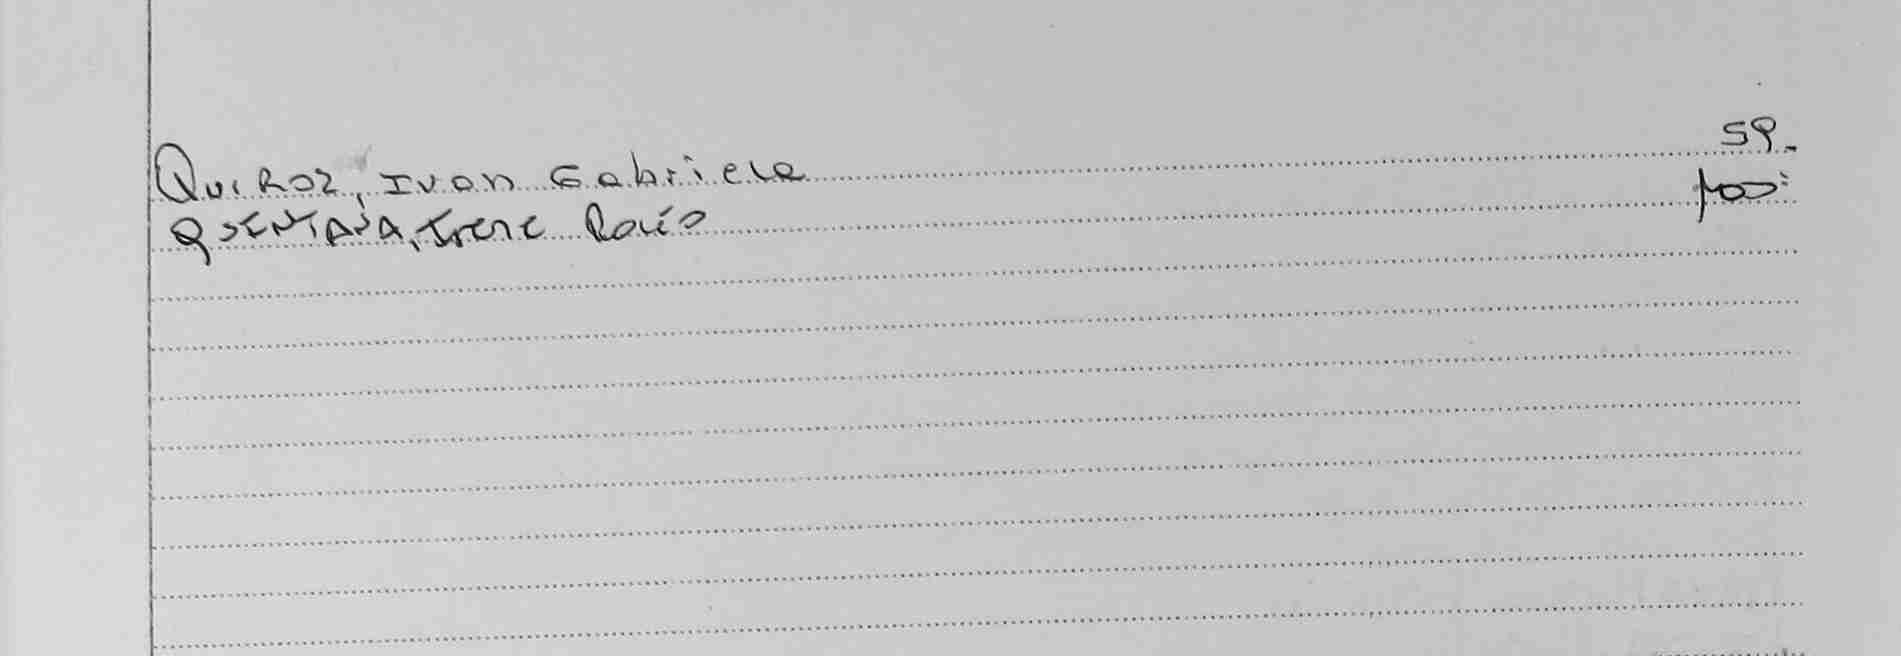 Quiroz, Ivan Gabriele 59.-
QUINTANA, Irene Rocío 100.-